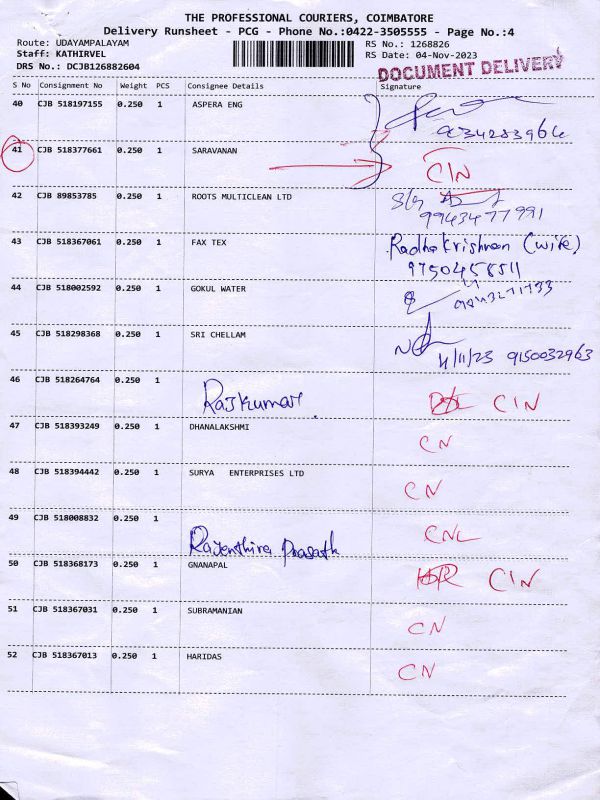 THE PROFESSIONAL COURIERS, COIMBATORE
Delivery Runsheet - PCG - Phone No.:0422-3505555 - Page No.:4
Route: UDAYAMPALAYAM RS No.: 1268826
Staff: KATHIRVEL RS Date: 04-Nov-2023
DRS No.: DCJB126882604 DOCUMENT DELIVERY
S No Consignment No Weight PCS Consignee Details Signature
40 CJB 518197155 0.250 1 ASPERA ENG
9034283964
41 CJB 518377661 0.250 1 SARAVANAN
CIN
42 CJB 89853785 0.250 1 ROOTS MULTICLEAN LTD
9943477991
43 CJB 518367061 0.250 1 FAX TEX Radhakrishnan (wife)
9750458511
44 CJB 518002592 0.250 1 GOKUL WATER
45 CJB 518298368 0.250 1 SRI CHELLAM
4/11/23 9150032963
46 CJB 518264764 0.250 1
Rajkumar. CIN
47 CJB 518393249 0.250 1 DHANALAKSHMI
CN
48 CJB 518394442 0.250 1 SURYA ENTERPRISES LTD
CN
49 CJB 518008832 0.250 1
Rajenthira Prasath CNL
50 CJB 518368173 0.250 1 GNANAPAL
CIN
51 CJB 518367031 0.250 1 SUBRAMANIAN
CN
52 CJB 518367013 0.250 1 HARIDAS
CN